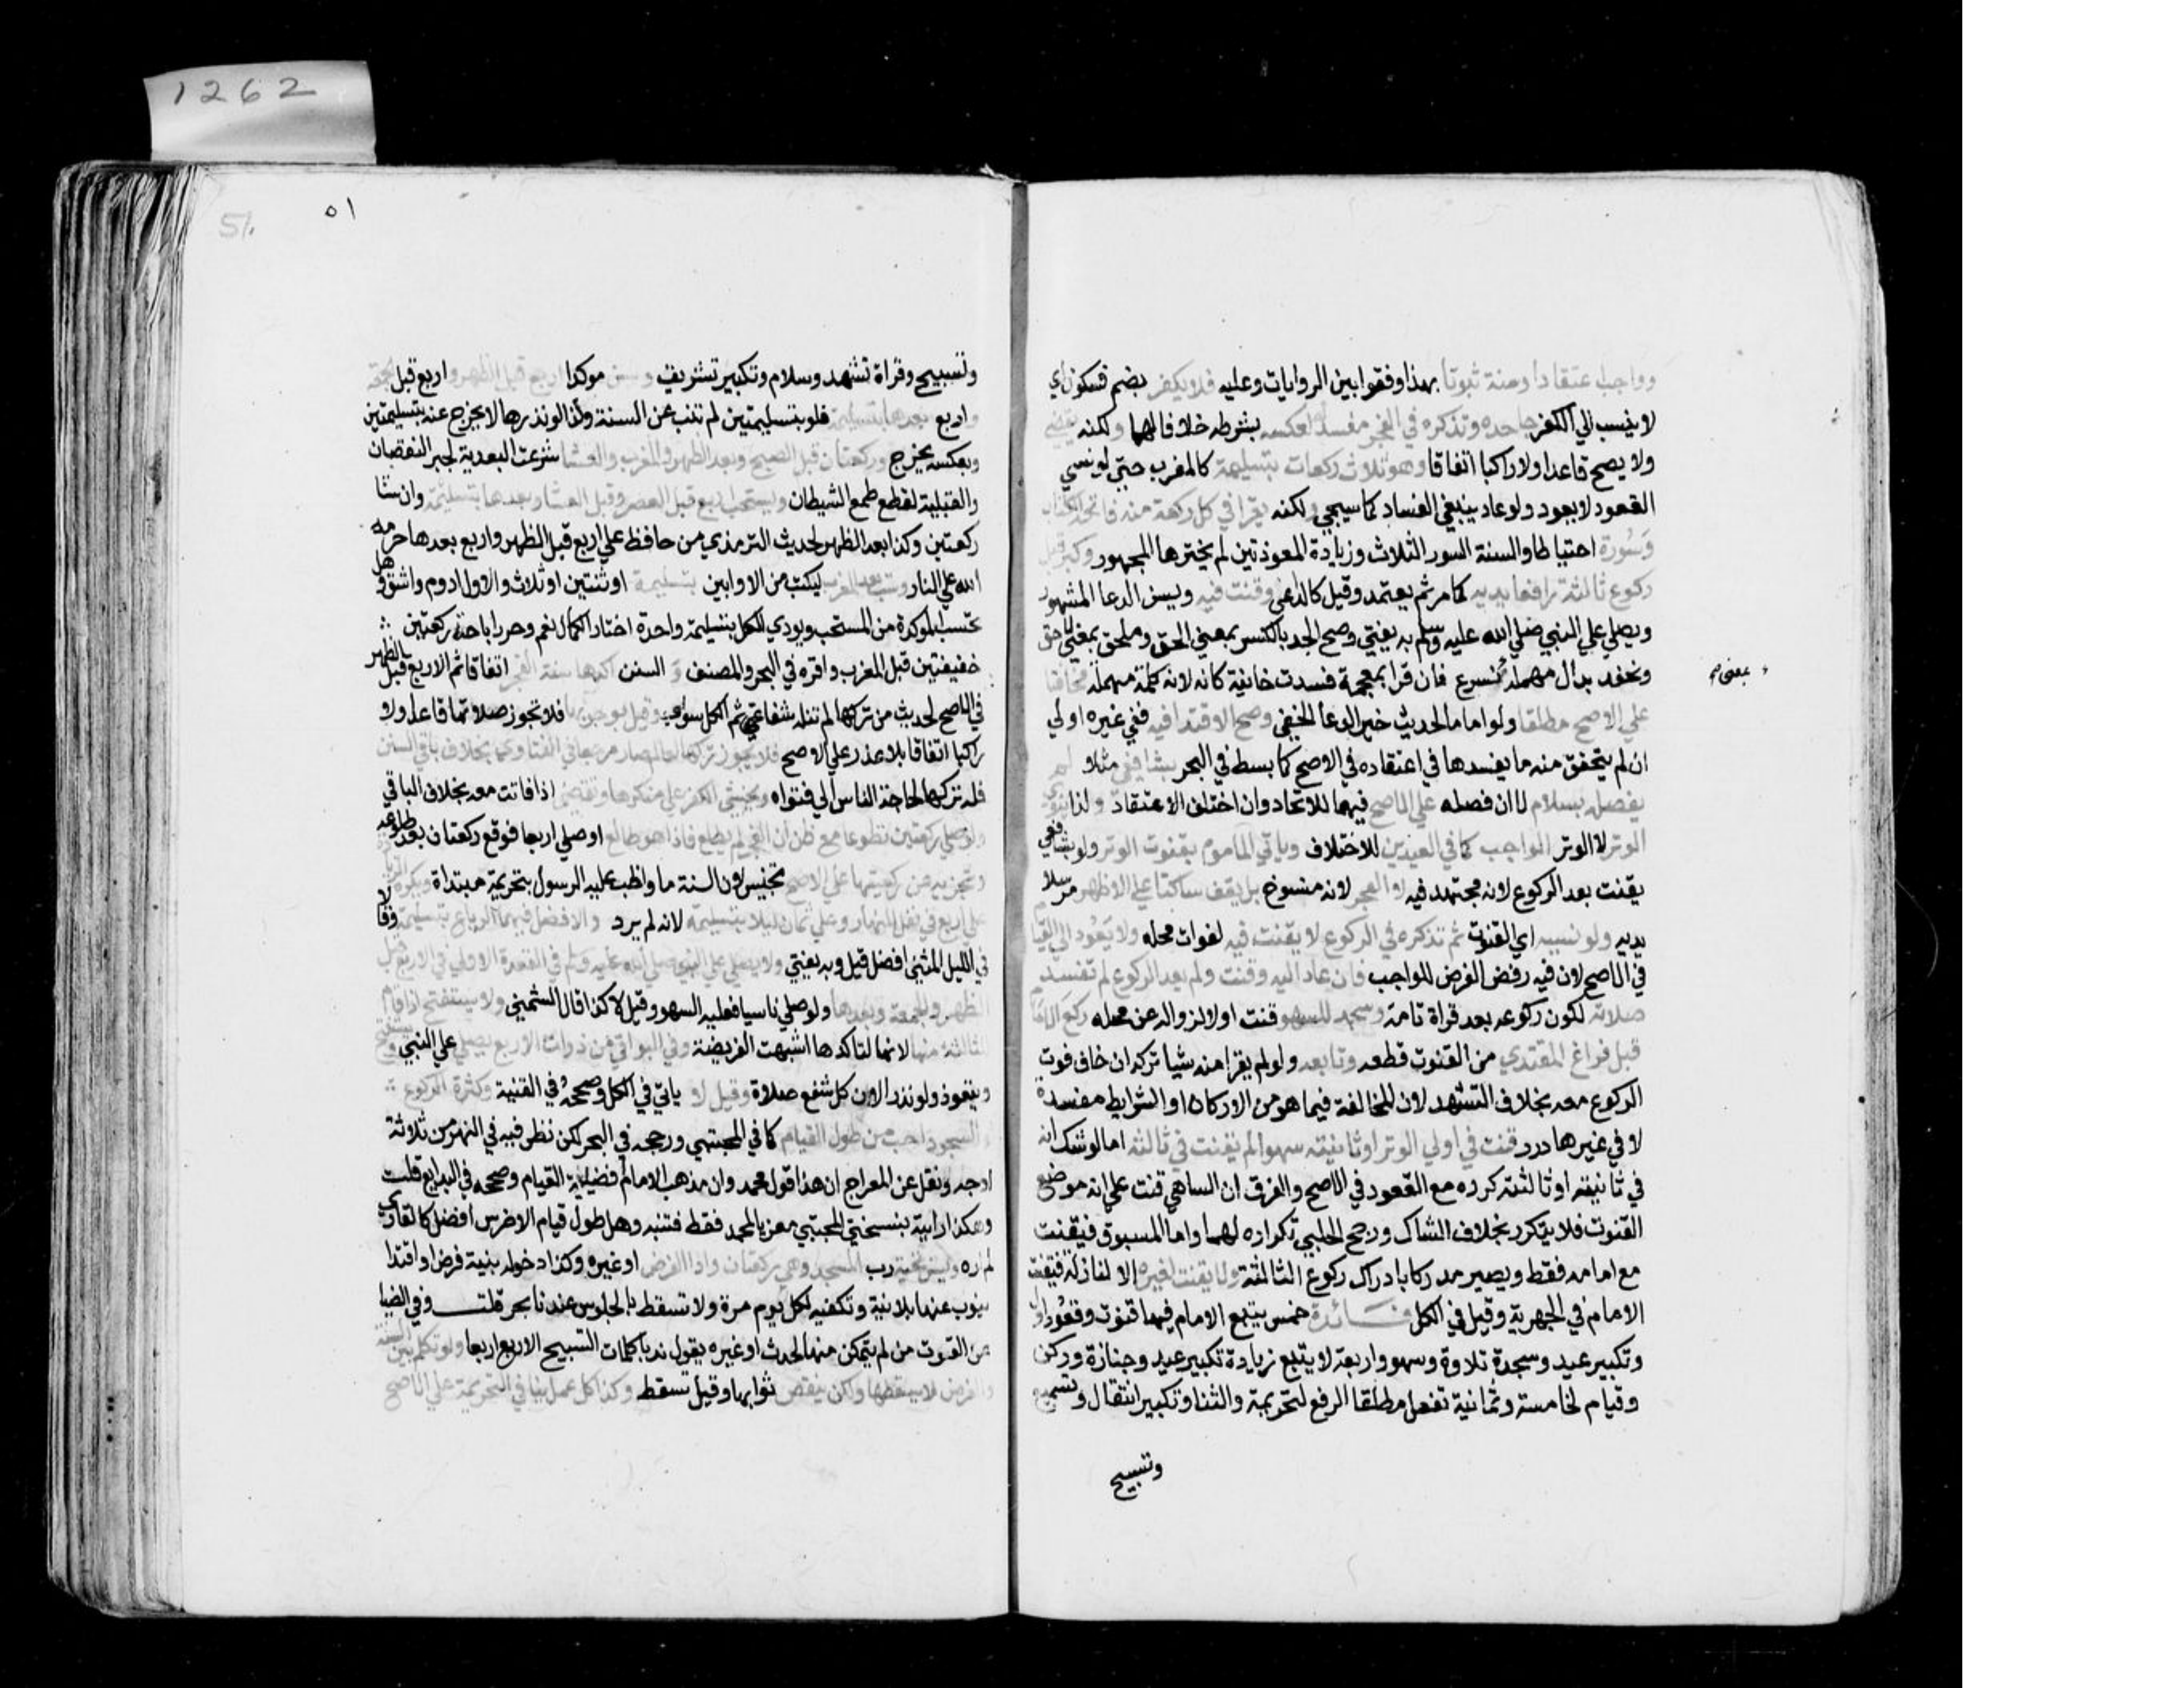 1262
وواجب اعتقادا وسنة ثبوتا بهذا وفقوا بين الروايات وعليه فلا يكفر بضم فسكون اي
لا ينسب الي الكفر جاحده وتذكره في الفجر مفسد له كعكسه بشرطه خلافا لهما ولكنه يقضي
ولا يصح قاعدا ولا راكبا اتفاقا وهو ثلاث ركعات بتسليمة كالمغرب حتي لو نسي
القعود لا يعود ولو عاد ينبغي الفساد كما سيجي ولكنه يقرا في كل ركعة منه فاتحة الكتاب
وسورة احتياطا والسنة السور الثلاث وزيادة المعوذتين لم يخترها الجمهور وكبر قبل
ركوع ثالثته رافعا يديه كما مر ثم يعتمد وقيل كالداعي وقنت فيه ويسن الدعا المشهور
ويصلي علي النبي صلي الله عليه وسلم به يفتي وصح الجد بالكسر بمعني الحق وملحق بمعني لاحق
ونحفد بدال مهملة نسرع فان قرا بمعجمة فسدت خانية كانه لانه كلمة مهملة مخافتا
بمعني صح
علي الاصح مطلقا ولو اماما لحديث خير الدعا الخفي وصح الاقتدا فيه ففي غيره اولي
ان لم يتحقق منه ما يفسدها في اعتقاده في الاصح كما بسط في البحر بشافعي مثلا لم
يفصل بسلام لا ان فصله علي الاصح فيهما للاتحاد وان اختلف الاعتقاد ولذا ينوي
الوتر لا الوتر الواجب كما في العيدين للاختلاف وياتي الماموم بقنوت الوتر ولو بشافعي
يقنت بعد الركوع لانه مجتهد فيه لا الفجر لانه منسوخ بل يقف ساكتا علي الاظهر مرسلا
يديه ولو نسيه اي القنوت ثم تذكره في الركوع لا يقنت فيه لفوات محله ولا يعود الي القيام
في الاصح لان فيه رفض الفرض للواجب فان عاد اليه وقنت ولم يعد الركوع لم تفسد
صلاته لكون ركوعه بعد قراة تامة وسجد للسهو قنت اولا لزواله عن محله ركع الامام
قبل فراغ المقتدي من القنوت قطعه وتابعه ولو لم يقرا منه شيا تركه ان خاف فوت
الركوع معه بخلاف التشهد لان المخالفة فيما هو من الاركان او الشرايط مفسدة
لا في غيرها درر قنت في اولي الوتر او ثانيته سهوا لم يقنت في ثالثه اما لو شك انه
في ثانيته او ثالثته كرره مع القعود في الاصح والفرق ان الساهي قنت علي انه موضع
القنوت فلا يتكرر بخلاف الشاك ورجح الحلبي تكراره لهما واما المسبوق فيقنت
مع امامه فقط ويصير مدركا بادراك ركوع الثالثة ولا يقنت لغيره الا لنازلة فيقنت
الامام في الجهرية وقيل في الكل فائدة خمس يتبع الامام فيها قنوت وقعود اول
وتكبير عيد وسجدة تلاوة وسهو واربعة لا يتبع زيادة تكبير عيد وجنازة وركن
وقيام لخامسة وثمانية تفعل مطلقا الرفع لتحريمة والثنا وتكبير انتقال وتسميع
وتسبيح
٥١
51.
وتسبيح وقراة تشهد وسلام وتكبير تشريف وسن موكدا اربع قبل الظهر واربع قبل الجمعة
واربع بعدها بتسليمة فلو بتسليمتين لم تنب عن السنة ولذا لو نذرها لا يخرج عنه بتسليمتين
وبعكسه يخرج وركعتان قبل الصبح وبعد الظهر والمغرب والعشا شرعت البعدية لجبر النقصان
والقبلية لقطع طمع الشيطان ويستحب اربع قبل العصر وقبل العشا وبعدها بتسليمة وان شا
ركعتين وكذا بعد الظهر لحديث الترمذي من حافظ علي اربع قبل الظهر واربع بعدها حرمه
الله علي النار وست بعد المغرب ليكتب من الاوابين بتسليمة او ثنتين او ثلاث والاول ادوم واشق وهل
تحتسب الموكدة من المستحب ويودي الكل بتسليمة واحدة اختار الكمال نعم وحرر اباحة ركعتين
خفيفتين قبل المغرب واقره في البحر والمصنف و السنن اكدها سنة الفجر اتفاقا ثم الاربع قبل الظهر
في الاصح لحديث من تركها لم تنله شفاعتي ثم الكل سوا وقيل بوجوبها فلا تجوز صلاتها قاعدا ولا
راكبا اتفاقا بلا عذر علي الاصح فلا يجوز تركها لعالم صار مرجعا في الفتاوي بخلاف باقي السنن
فله تركها لحاجة الناس الي فتواه ويخشي الكفر علي منكرها وتقضي اذا فاتت معه بخلاف الباقي
ولو صلي ركعتين تطوعا مع ظن ان الفجر لم يطلع فاذا هو طالع او صلي اربعا فوقع ركعتان بعد طلوعه
لا تجزيه عن ركعتيها علي الاصح تجنيس لان السنة ما واظب عليه الرسول بتحريمة مبتداة ويكره الزيادة
علي اربع في نفل النهار وعلي ثمان ليلا بتسليمة لانه لم يرد والافضل فيهما الرباع بتسليمة وقالا
في الليل المثني افضل قيل وبه يفتي ولا يصلي علي النبي صلي الله عليه وسلم في القعدة الاولي في الاربع قبل
الظهر والجمعة وبعدها ولو صلي ناسيا فعليه السهو وقيل لا كذا قال الشمني ولا يستفتح اذا قام
للثالثة منها لانها لتاكدها اشبهت الفريضة وفي البواقي من ذوات الاربع يصلي علي النبي ويستفتح
ويتعوذ ولو نذرا لان كل شفع صلاة وقيل لا ياتي في الكل وصححه في القنية وكثرة الركوع
والسجود احب من طول القيام كما في المجتبي ورجحه في البحر لكن نظر فيه في النهر من ثلاثة
اوجه ونقل عن المعراج ان هذا قول محمد وان مذهب الامام افضلية القيام وصححه في البدايع قلت
وهكذا رايته بنسختي المجتبي معزيا لمحمد فقط فتنبه وهل طول قيام الاخرس افضل كالقاري
لم اره وسن تحية رب المسجد وهي ركعتان واذا الفرض او غيره وكذا دخوله بنية فرض او اقتدا
ينوب عنها بلا نية وتكفيه لكل يوم مرة ولا تسقط بالجلوس عندنا بحر قلت وفي الضيا
عن القوت من لم يتمكن منها لحدث او غيره يقول ندبا كلمات التسبيح الاربع اربعا ولو تكلم بين السنة
والفرض لا يسقطها ولكن ينقص ثوابها وقيل تسقط وكذا كل عمل ينافي التحريمة علي الاصح